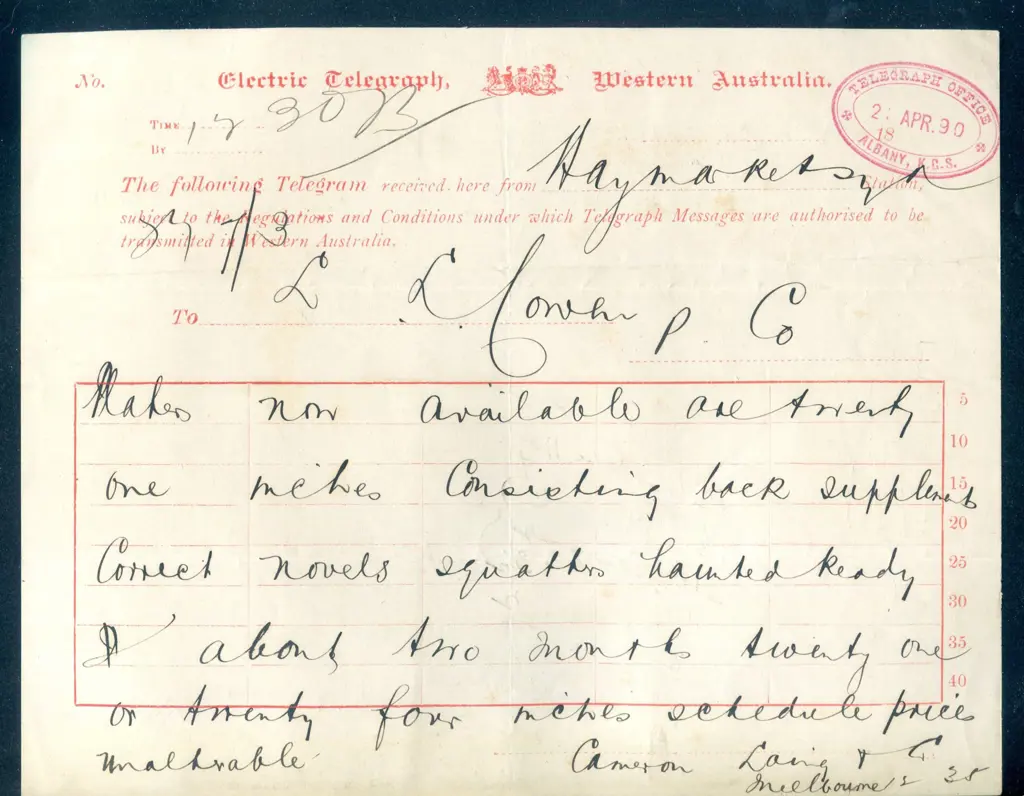 No. Electric Telegraph, Western Australia.
TELEGRAPH OFFICE
2: APR. 90
18
ALBANY, K.G.S.
TIME 12 30 B
BY
The following Telegram received here from Haymarket Syd Station,
subject to the Regulations and Conditions under which Telegraph Messages are authorised to be
transmitted in Western Australia.
37 7/3
To L L Cowen & Co
Makes now available are twenty 5
10
one inches Consisting back supplements 15
20
Correct novels squatters haunted Ready 25
30
about two months twenty one 35
40
or twenty four inches schedule prices
unalterable Cameron Laing & Co
Melbourne